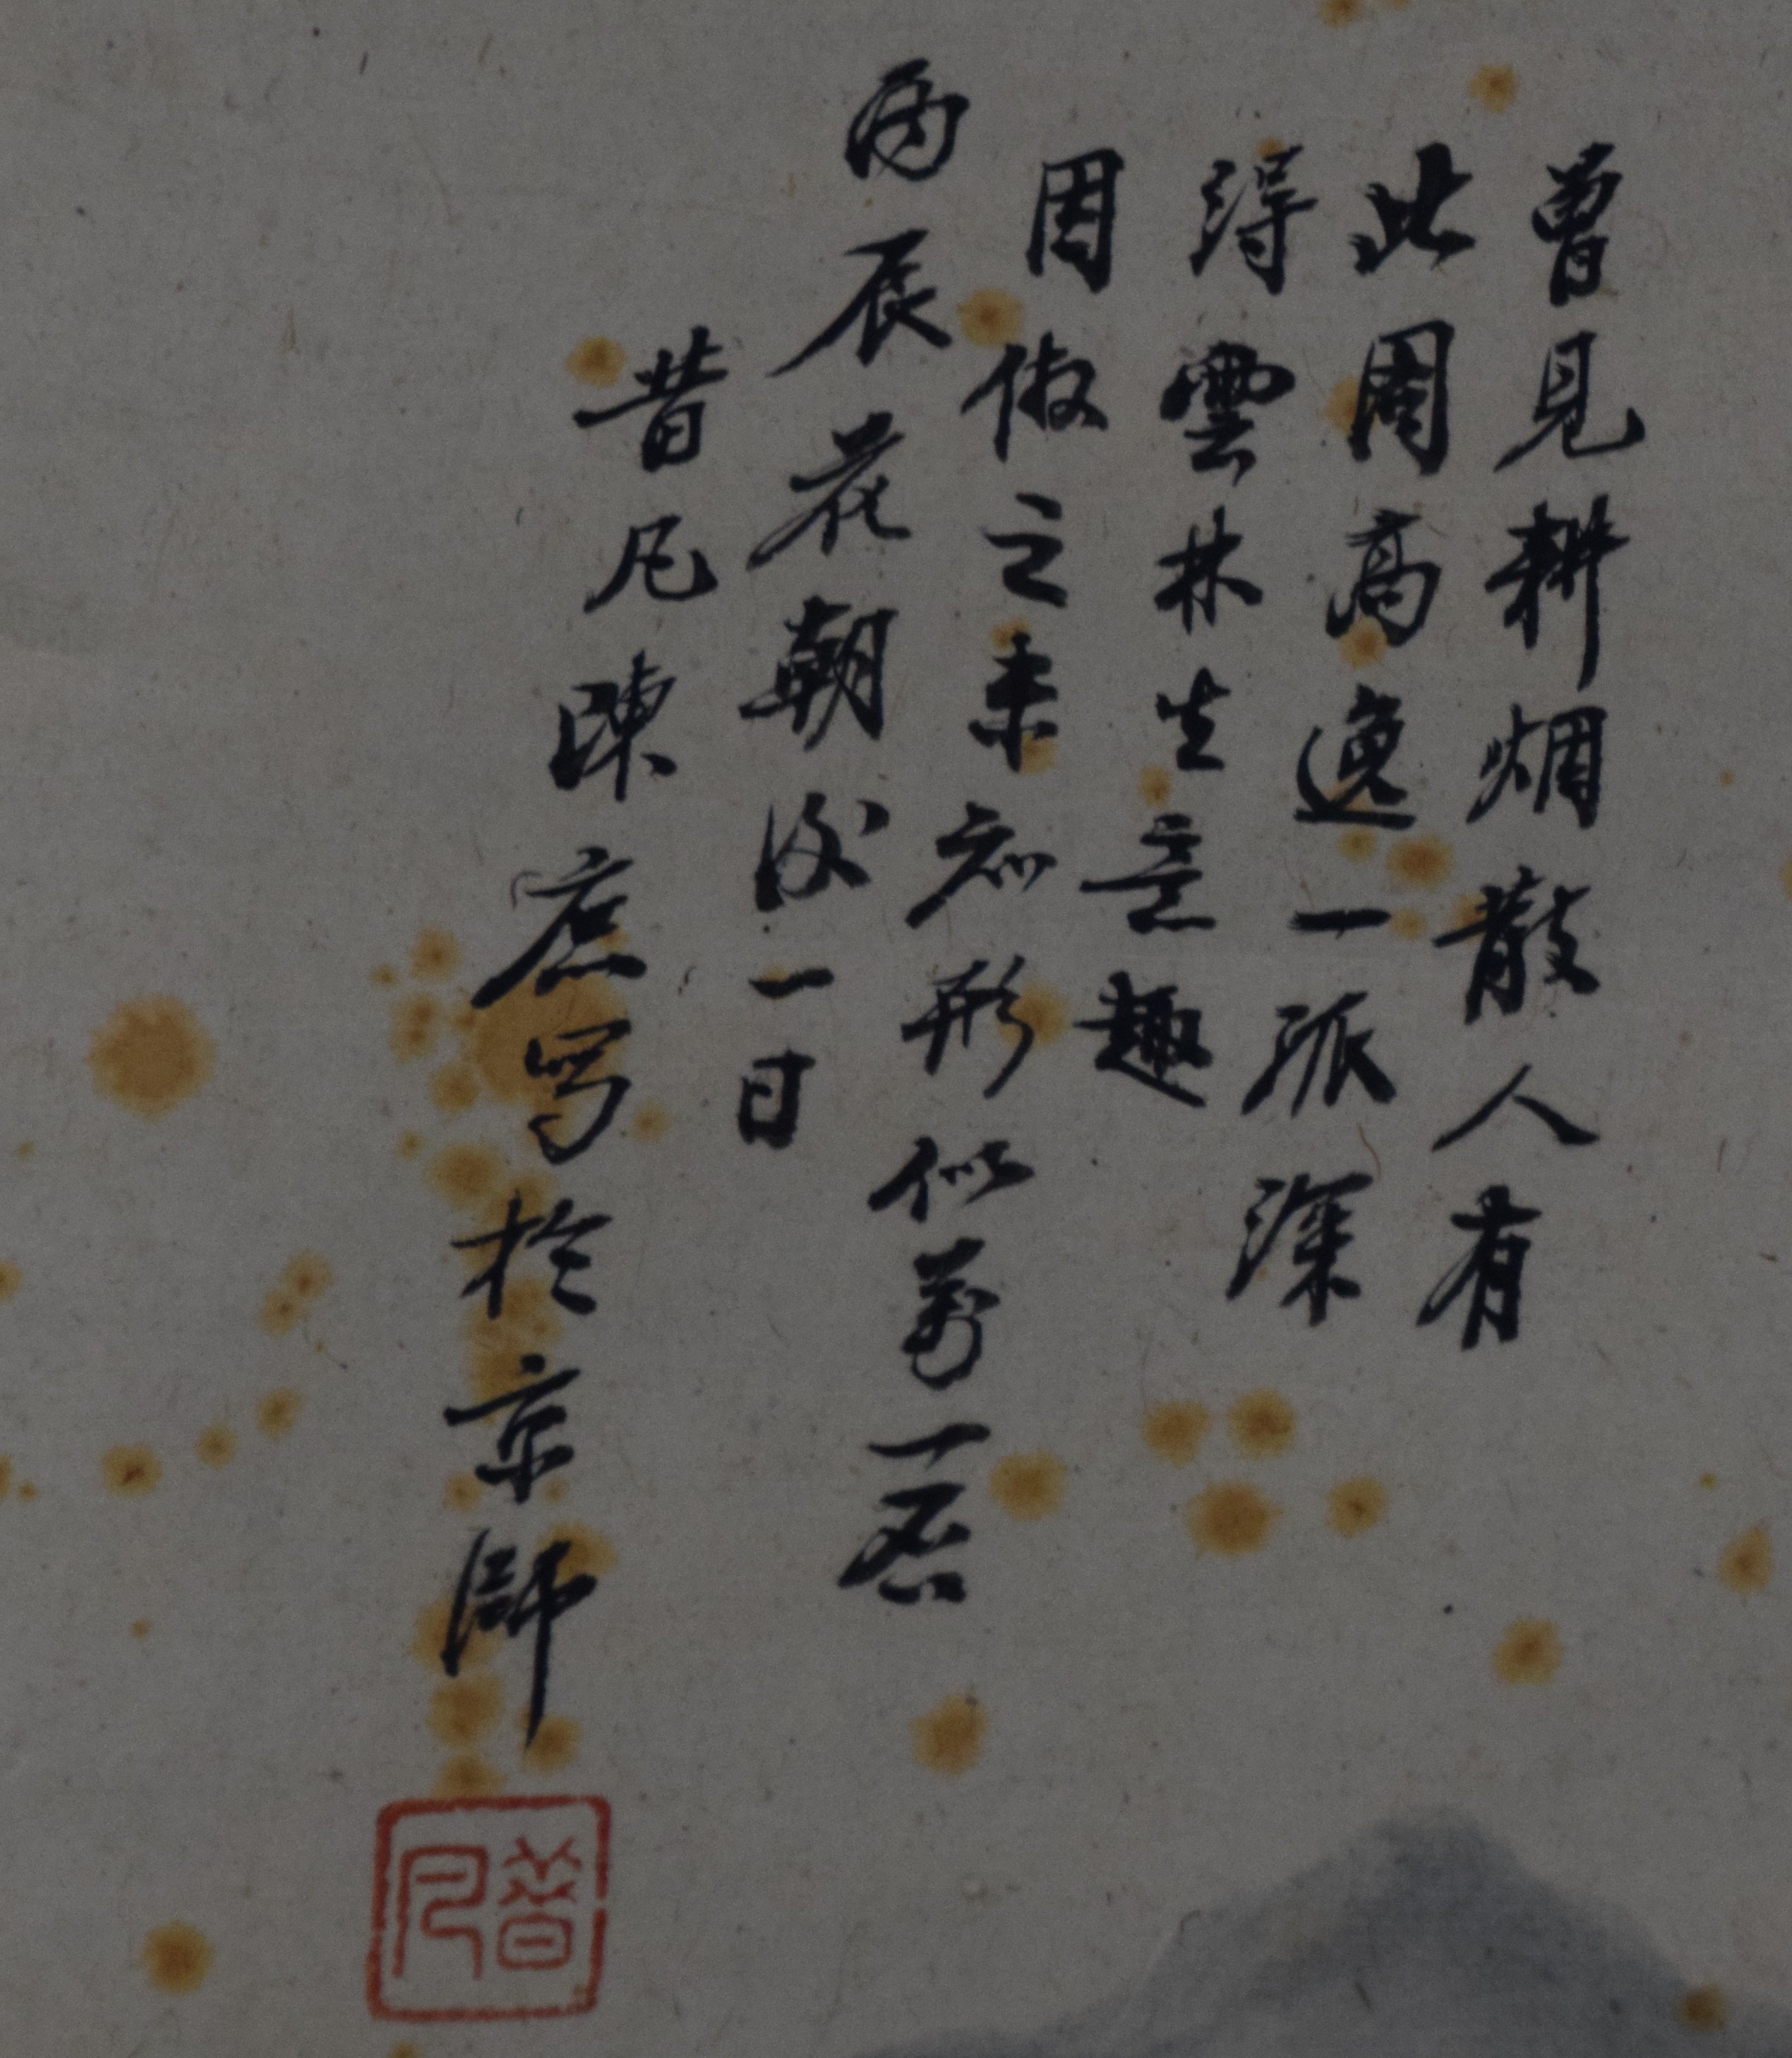 曾見耕烟散人有
此圖高逸一派深
得雲林生意趣
因倣之未知形似萬一否
丙辰花朝後一日
昔凡陳庶寫於京師
昔凡